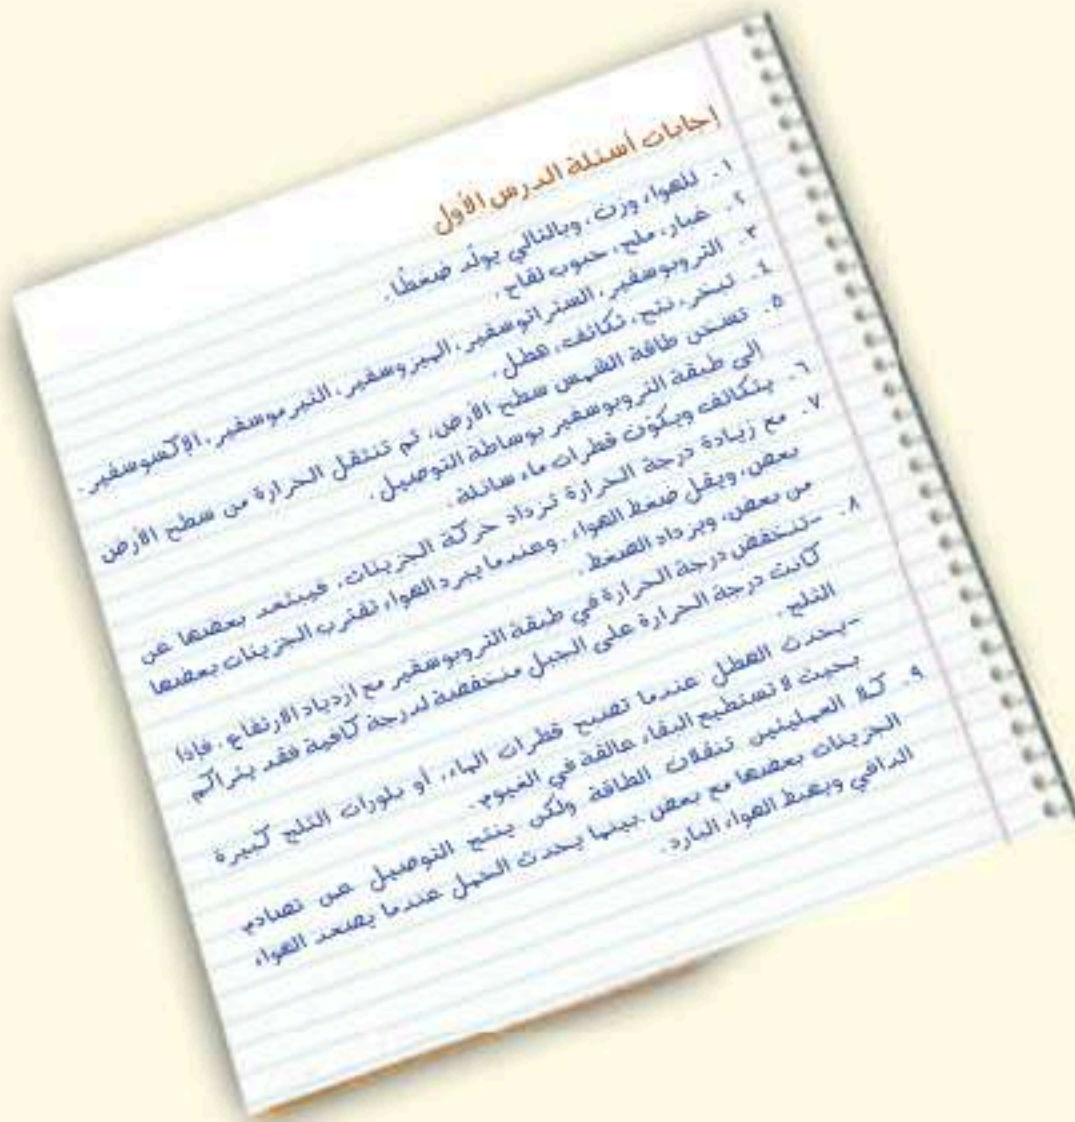 إجابات أسئلة الدرس الأول
١. للهواء وزن، وبالتالي يولّد ضغطًا.
٢. غبار، ملح، حبوب لقاح.
٣. التروبوسفير، الستراتوسفير، الميزوسفير، الثيرموسفير، الإكسوسفير.
٤. تبخر، نتح، تكاثف، هطل.
٥. تسخن طاقة الشمس سطح الأرض، ثم تنتقل الحرارة من سطح الأرض
إلى طبقة التروبوسفير بوساطة التوصيل.
٦. يتكاثف ويكوّن قطرات ماء سائلة.
٧. مع زيادة درجة الحرارة تزداد حركة الجزيئات، فيبتعد بعضها عن
بعض، ويقل ضغط الهواء. وعندما يبرد الهواء تقترب الجزيئات بعضها
من بعض، ويزداد الضغط.
٨. -تنخفض درجة الحرارة في طبقة التروبوسفير مع ازدياد الارتفاع. فإذا
كانت درجة الحرارة على الجبل منخفضة لدرجة كافية فقد يتراكم
الثلج.
-يحدث الهطل عندما تصبح قطرات الماء، أو بلورات الثلج كبيرة
بحيث لا تستطيع البقاء عالقة في الغيوم.
٩. كلا العمليتين تنقلان الطاقة ولكن ينتج التوصيل عن تصادم
الجزيئات بعضها مع بعض بينما يحدث الحمل عندما يصعد الهواء
الدافئ ويهبط الهواء البارد.